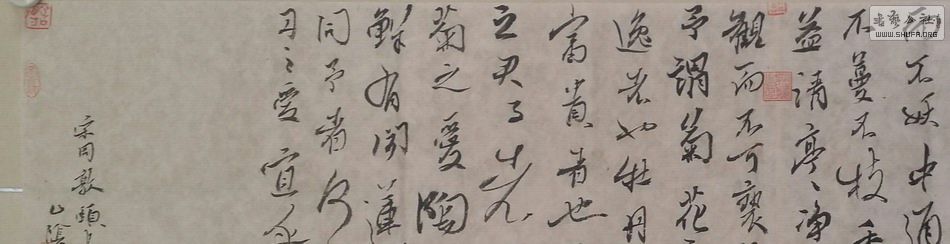 而不妖中通
不蔓不枝香
益清亭亭净
觀而不可褻
予謂菊花
逸者也牡丹
富貴者也
之君子
菊之愛陶
鮮有聞蓮
同予者何
丹之愛宜乎
宋周敦頤
书法公社
WWW.SHUFA.ORG